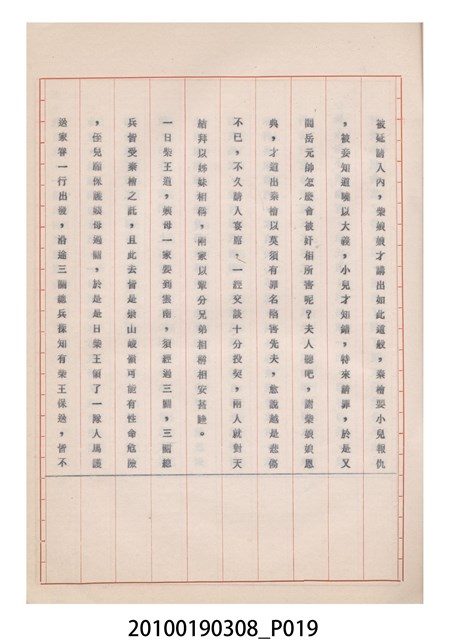 被延請入內,柴娘娘才講出如此這般,秦檜要小兒報仇
,被妾知道曉以大義,小兒才知錯,特來請罪,於是又
問岳元帥怎麼會被奸相所害呢?夫人聽吧,謝柴娘娘恩
典,才道出秦檜以莫須有罪名陷害先夫,愈說越是悲傷
不已,不久請入宴席,一經交談十分投契,兩人就對天
結拜以姊妹相稱,兩家以輩分兄弟相稱相安甚睦。
一日柴王道,嬸母一家要到雲南,須經過三關,三關總
兵皆受秦檜之託,且此去皆是峻山峻嶺可能有性命危險
,侄兒願保護嬸母過關,於是是日柴王領了一隊人馬護
送家眷一行出發,沿途三關總兵探知有柴王保送,皆不
20100190308_P019